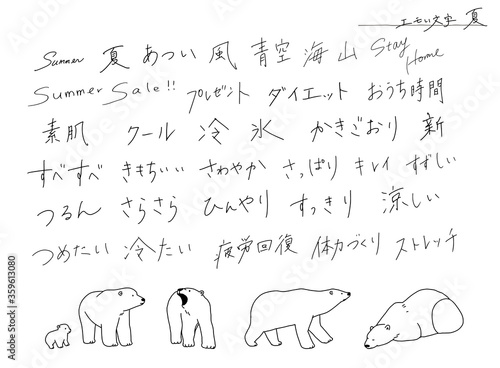 エモい文字 夏
Summer 夏 あつい 風 青空 海 山 Stay Home
Summer Sale!! プレゼント ダイエット おうち時間
素肌 クール 冷 氷 かきごおり 新
すべすべ きもちいい さわやか さっぱり キレイ すずしい
つるん さらさら ひんやり すっきり 涼しい
つめたい 冷たい 疲労回復 体力づくり ストレッチ
Adobe Stock | #359613080